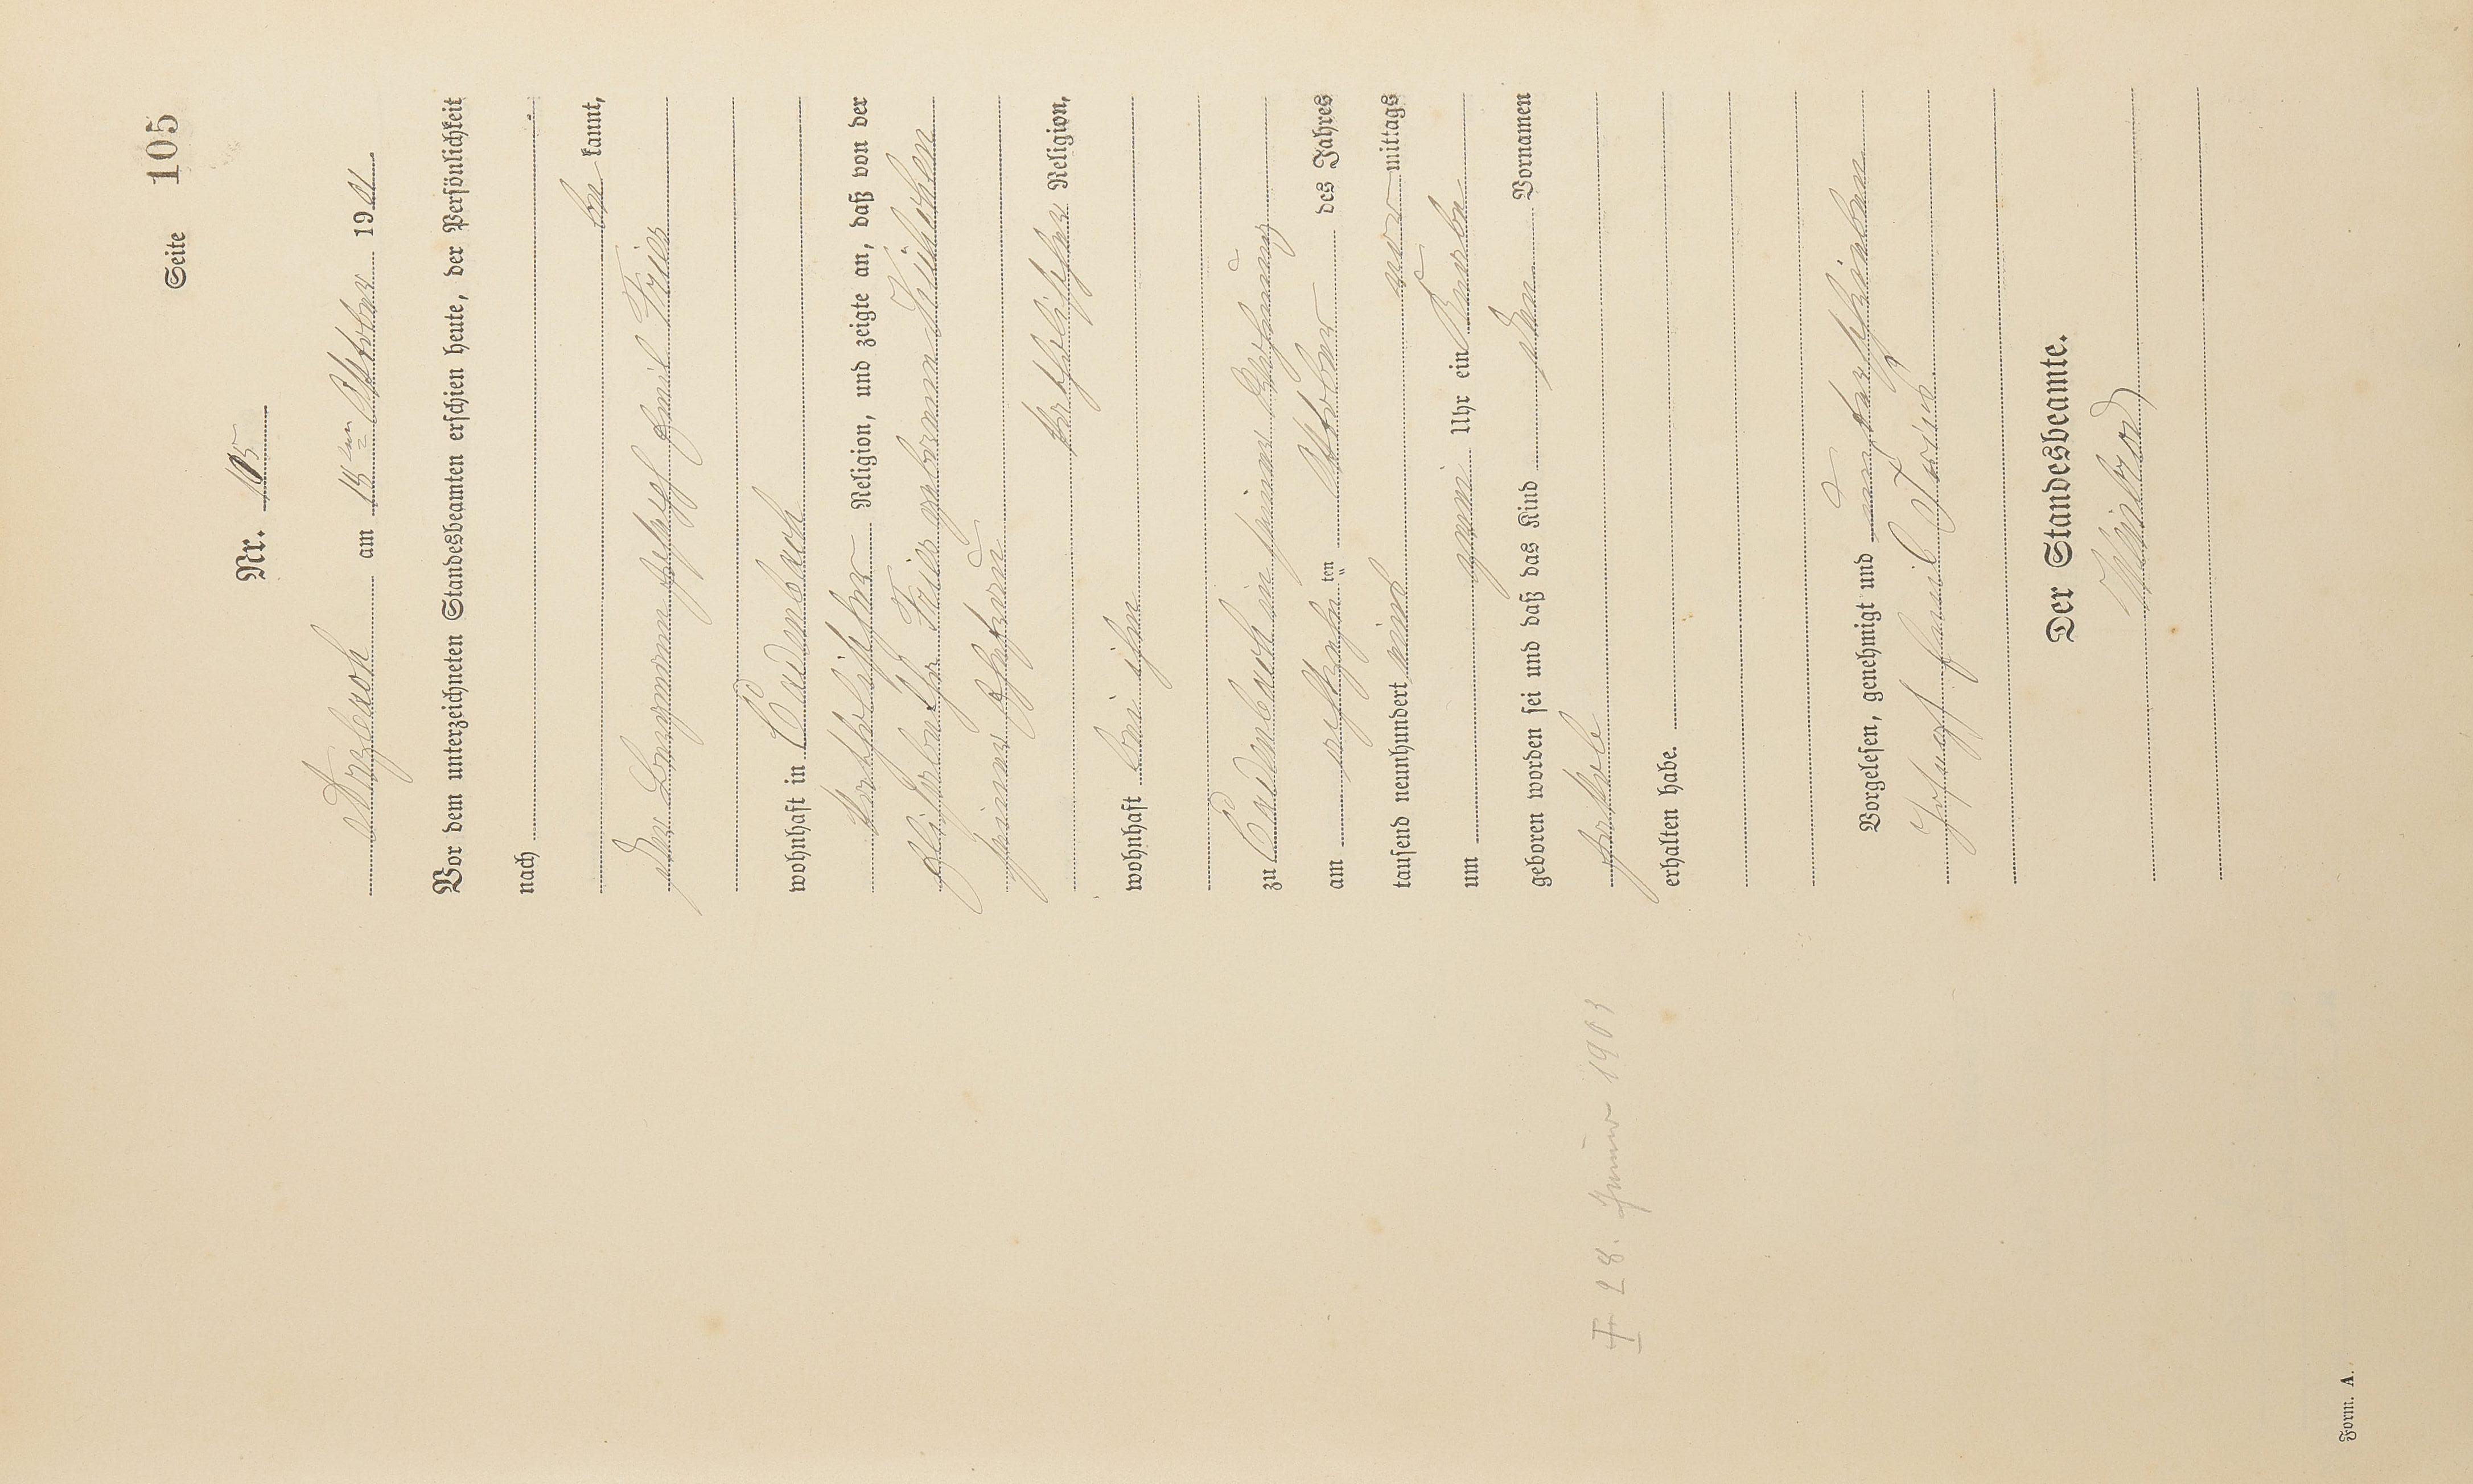 Seite 105
Nr. 105
Atzbach am 15ten Oktober 1901.
Vor dem unterzeichneten Standesbeamten erschien heute, der Persönlichkeit
nach
be kannt,
der Bergmann Joseph Emil
wohnhaft in Laudenbach
katholischer Religion, und zeigte an, daß von der
Elisabetha geborene
seiner Ehefrau
katholischer Religion,
wohnhaft bei ihm
zu Laudenbach in seiner Wohnung
am ten Oktober des Jahres
tausend neunhundert eins vor mittags
um neun Uhr ein Knabe
geboren worden sei und daß das Kind den Vornamen
Jakob
erhalten habe.
Vorgelesen, genehmigt und unterschrieben
Johann Emil
Der Standesbeamte.
† 28. Januar 1903
Form. A.